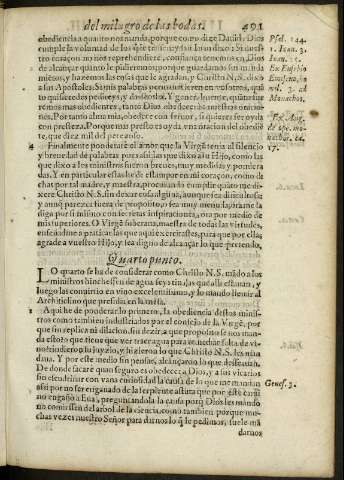 del milagro de las bodas. 491
obediencia a quanto nos manda, porque como dize Dauid, Dios
cumple la voluntad de los que le temen, y san Iuan dixo: Si nuestro
coraçon no nos reprehendiere, confiança tenemos en Dios,
de alcançar quanto le pidieremos, porque guardamos sus mandamientos,
y hazemos las cosas que le agradan, y Christo N. S. dixo
a sus Apostoles: Si mis palabras permanecieren en vosotros, quanto
quisieredes pedireys, y daros lo ha. Y generalmente, quanto
fueremos mas obedientes, tanto Dios obedecerà a nuestras oraciones.
Por tanto alma mia, obedece con feruor, si quieres ser oyda
con presteza. Porque mas presto es oyda vna oracion del obediente,
que diez mil del perezoso.
4 Finalmente ponderarè el amor que la Virgē tenia al silencio
y breuedad de palabras, pues assi las que dixo a su Hijo, como las
que dixo a los ministros fueron breues, muy medidas y ponderadas.
Y en particular estas he de estampar en mi coraçon, como dichas
por tal madre, y maestra, procurādo cumplir quāto me dixere
Christo N. S. sin dexar cosa alguna, aunque sea dificultosa:
y aunq̄ parezca fuera de proposito, o sea muy menuda, ora me lo
diga por si mismo con secretas inspiraciones, ora por medio de
mis superiores. O Virgē soberana, maestra de todas las virtudes,
enseñadme a praticar las que aqui exercitastes, para que por ellas
agrade a vuestro Hijo, y sea digno de alcançar lo que pretendo.
Quarto punto.
LO quarto se ha de considerar como Christo N. S. mādo a los
ministros hinchessen de agua seys tinajas que alli estauan, y
luego las conuirtio en vino excelentissimo, y lo mando lleuar al
Architiclino que presidia en la mesa.
1 Aqui he de ponderar lo primero, la obediencia destos ministros
como tambien industriados por el consejo de la Virgē, porque
sin replica ni dilacion, sin dezir, a que proposito se nos manda
esto? o que tiene que ver traer agua para remediar falta de vino?
rindieron su juyzio, y hizieron lo que Christo N. S. les mandaua.
Y por este medio sin pensar, alcançaron lo que desseauan.
De donde sacarè quan seguro es obedecer a Dios, y a sus vicarios
sin escudriñar con vana curiosidad la causa de lo que me mandan
assi por no ser engañado de la serpiente astuta que por este camino
engaño a Eua, preguntandola la causa porq̄ Dios les mando
no comiessen del arbol de la ciencia, como tambien porque muchas
vezes nuestro Señor para darnos lo q̄ le pedimos, suele mā
darnos
Psal. 144.
1. Ioan. 3.
Ioan. 15.
Ex Eusebio
Emiseno, in
mil. 3. ad
Monachos.
Ex Aug.
de ope. monachor.
17.
Genes. 3.